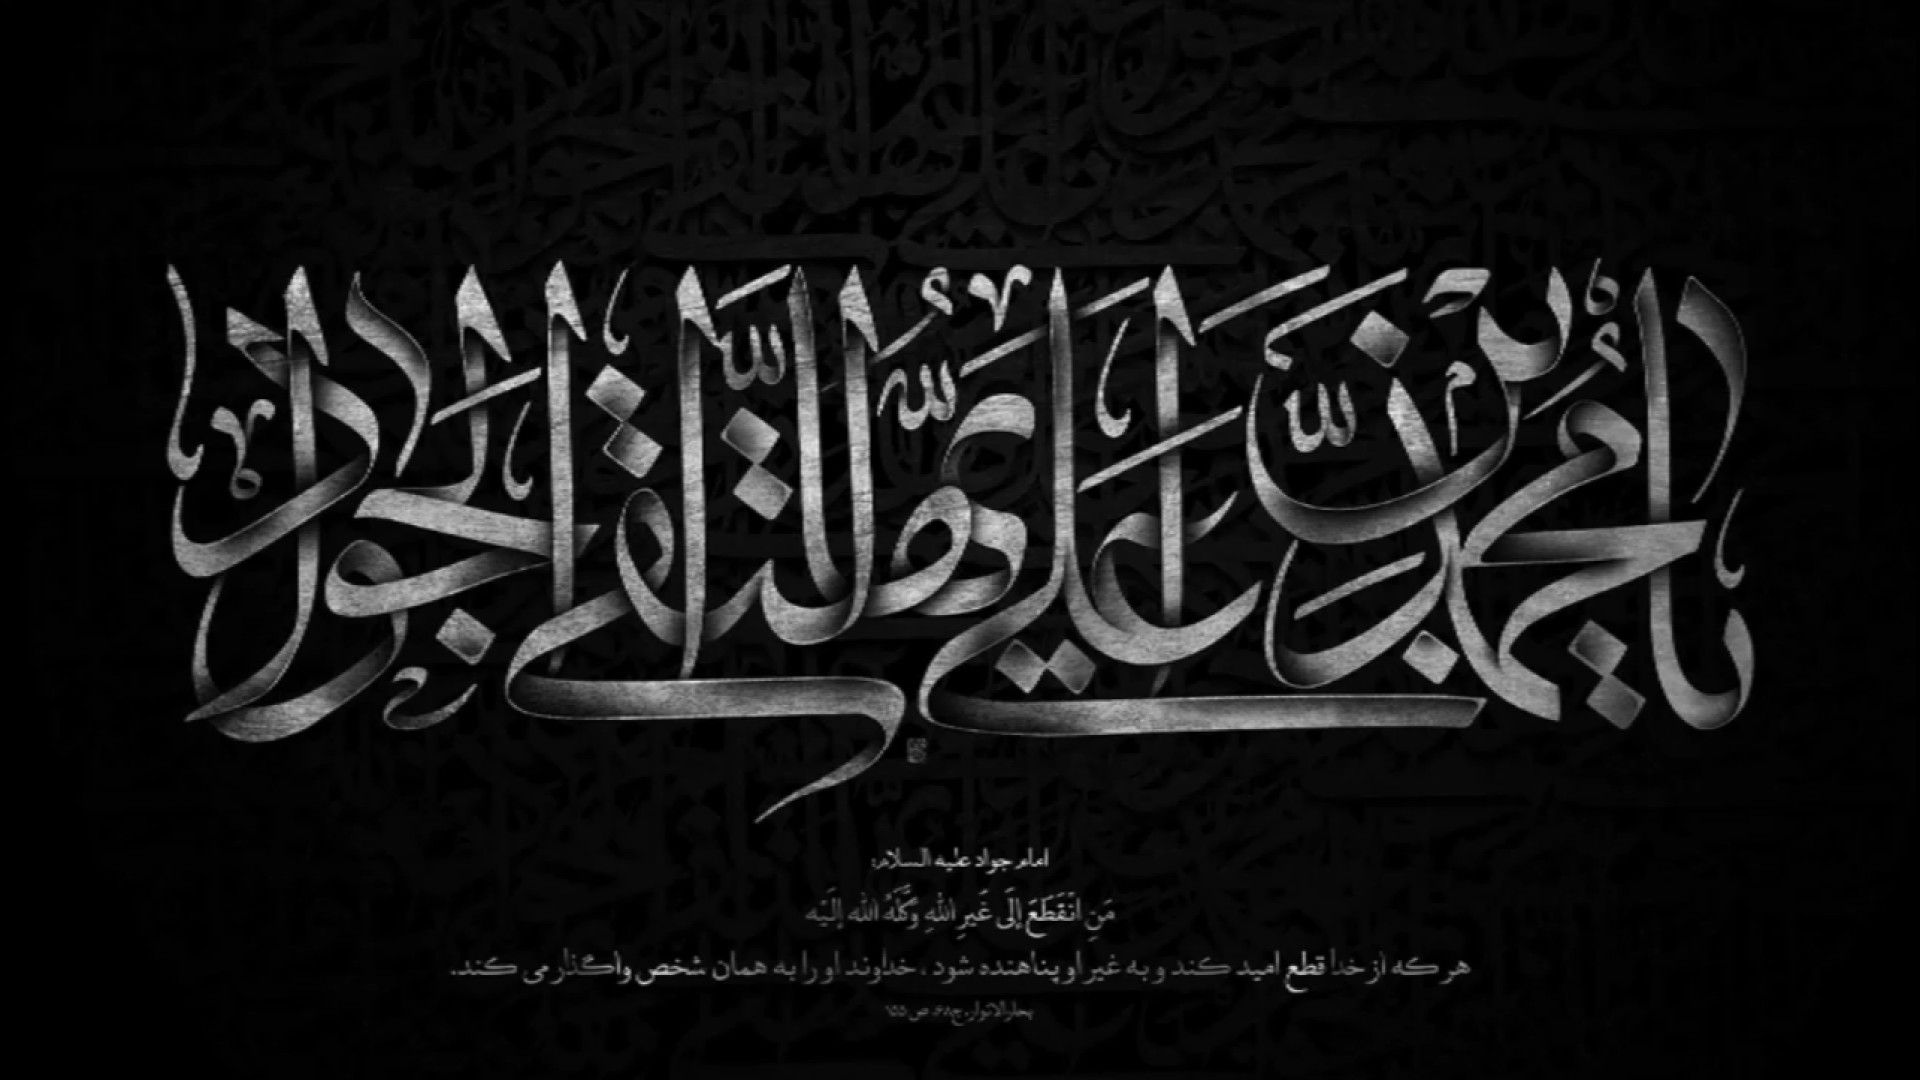 یا محمد بن علی ایها التقی الجواد
امام جواد علیه السلام:
مَنِ انْقَطَعَ إلَی غَیرِ اللهِ وَکَّلَهُ الله إلَیْه
هر که از خدا قطع امید کند و به غیر او پناهنده شود ، خداوند او را به همان شخص واگذار می کند.
بحارالانوار، ج۶۸، ص۱۵۵